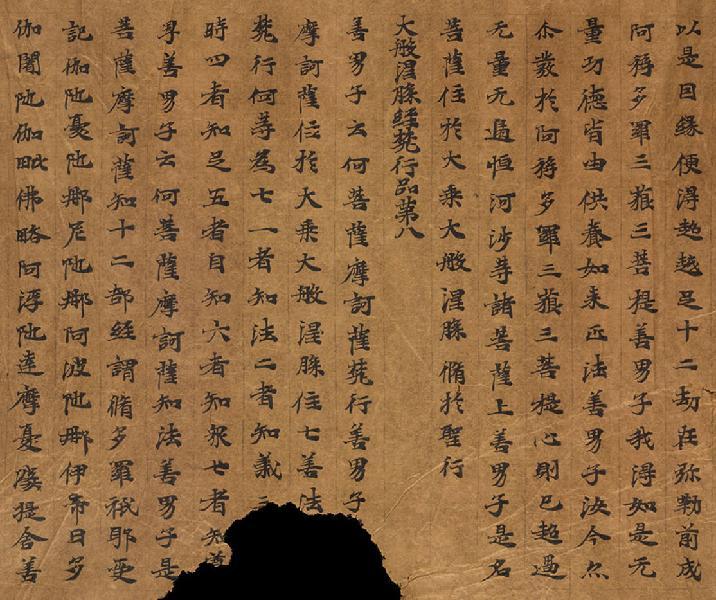 以是因緣便得超越足十二劫在弥勒前成
阿耨多羅三藐三菩提善男子我得如是无
量功德皆由供養如来正法善男子汝今亦
尒發於阿耨多羅三藐三菩提心則已超過
无量无邊恒河沙等諸菩薩上善男子是名
菩薩住於大乘大般涅槃脩於聖行
大般涅槃經梵行品第八
善男子云何菩薩摩訶薩梵行善男子
摩訶薩住於大乘大般涅槃住七善法
梵行何等為七一者知法二者知義三
時四者知足五者自知六者知衆七者知
男善男子云何菩薩摩訶薩知法善男子是
菩薩摩訶薩知十二部經謂脩多羅祇耶受
記伽陀憂陀那尼陀那阿波陀那伊帝曰多
伽闍陀伽毗佛略阿浮陀達摩憂波提舍善